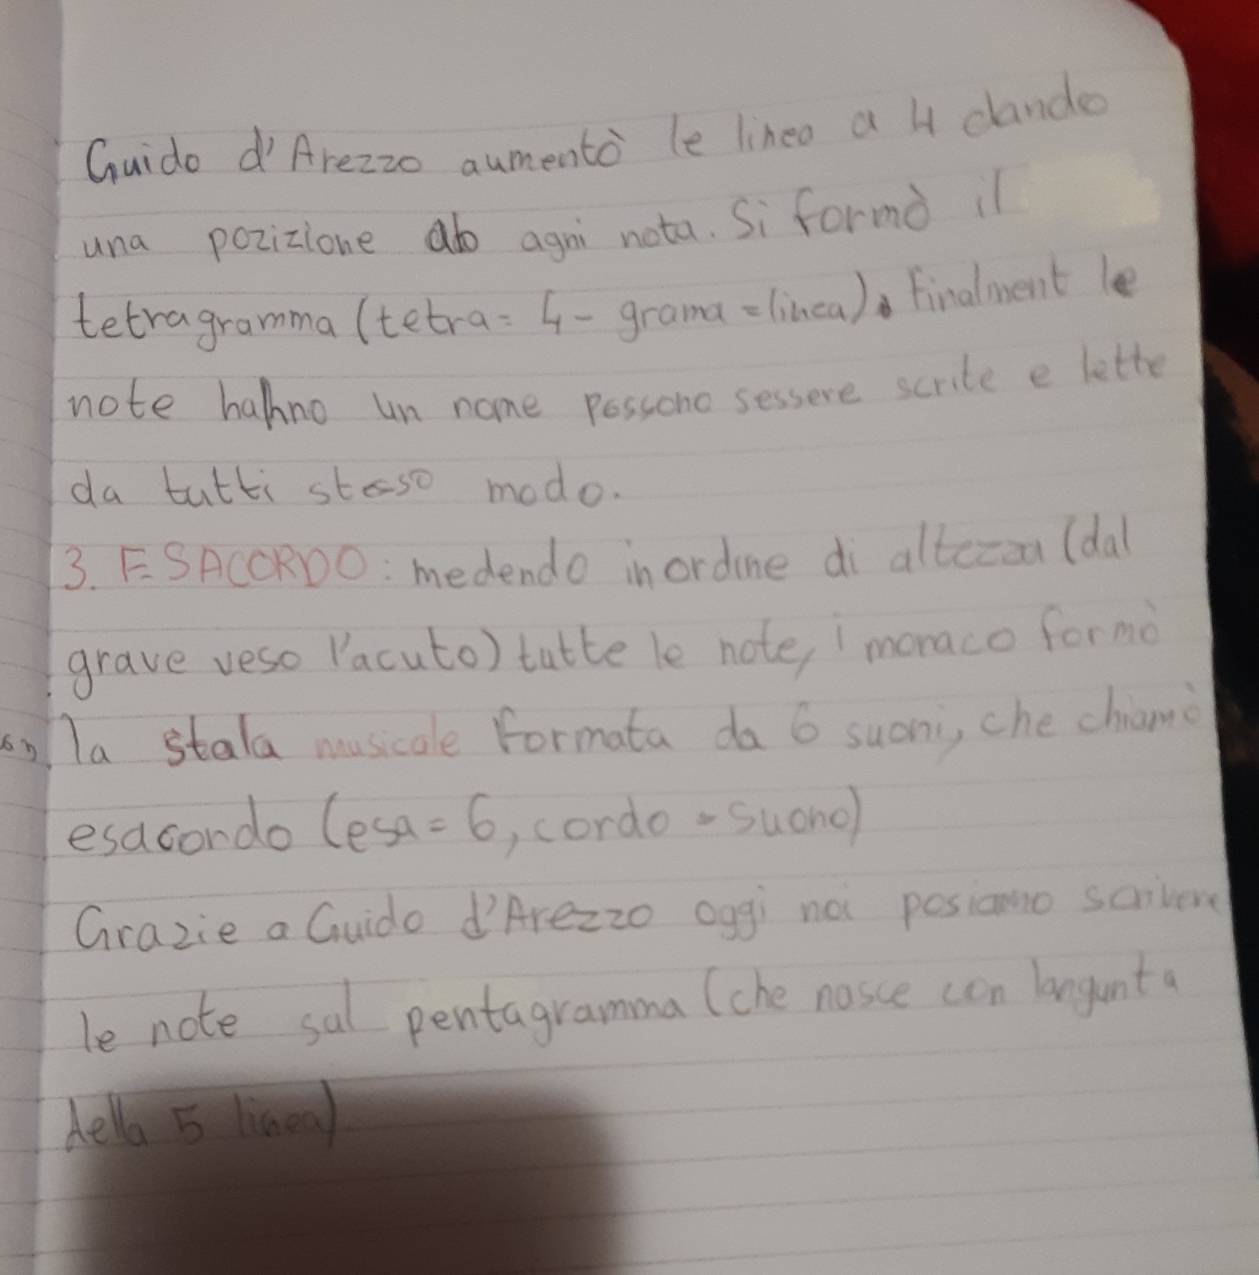 Guido d'Arezzo aumentò le linea a 4 dando
una pozizione ab agni nota. Si formò il
tetragramma (tetra = 4 - grama = linea). Finalment le
note hanno un nome possono sessere scrite e lette
da tutti stesso modo.
3. ESACORDO: medendo in ordine di altezza (dal
grave veso l'acuto) tutte le note, i monaco formò
la stala musicale formata da 6 suoni, che chiamò
esacordo (esa = 6, cordo = suono)
Grazie a Guido d'Arezzo oggi noi posiamo scrivere
le note sul pentagramma (che nasce con langunta
della 5 linea)